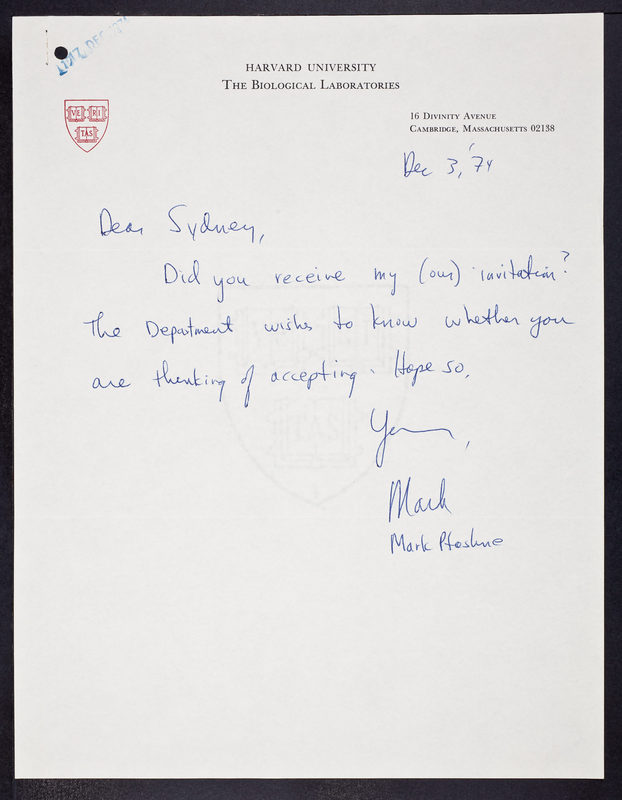 DEC 197
HARVARD UNIVERSITY
THE BIOLOGICAL LABORATORIES
VE RI
TAS
16 DIVINITY AVENUE
CAMBRIDGE, MASSACHUSETTS 02138
Dec 3, '74
Dear Sydney,
Did you receive my (our) invitation?
The Department wishes to know whether you
are thinking of accepting. Hope so.
Yours,
Mark
Mark Ptashne